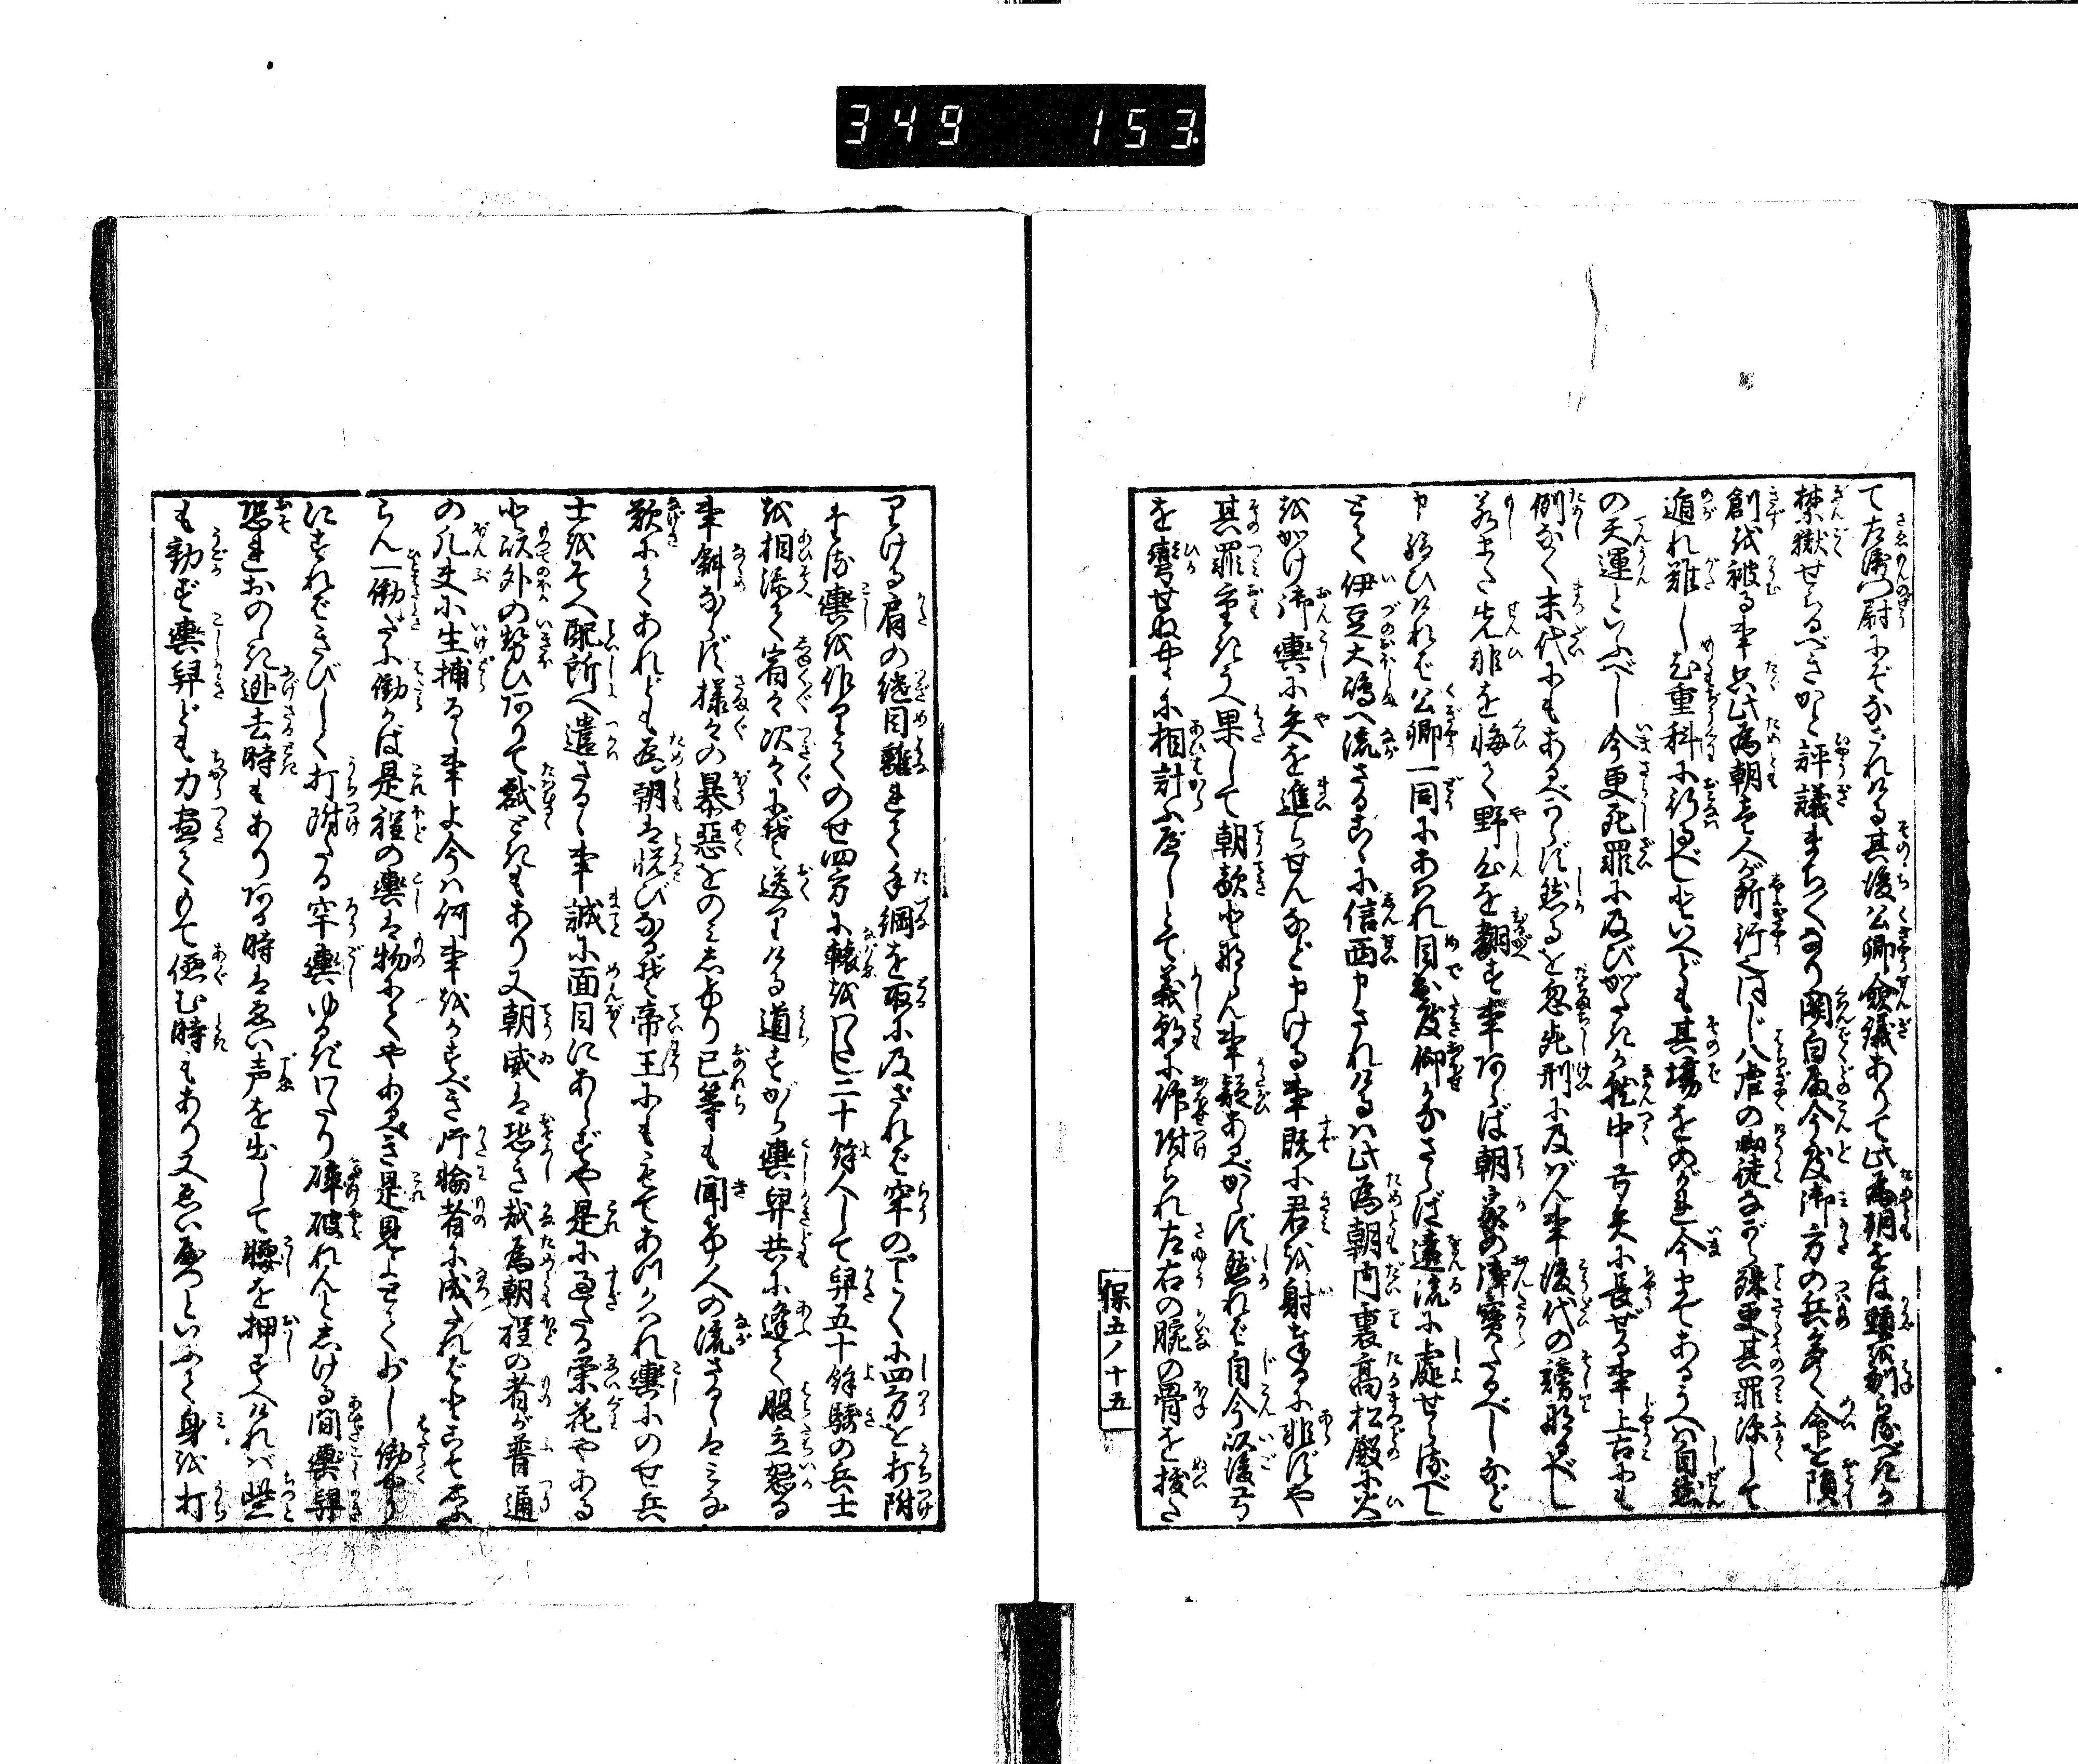 349 153
て左衛門尉にぞなされける其後公卿僉議ありて此為朝をは頭を刎らるべきか
禁獄せらるべきかと評議まち〳〵なり関白殿今度御方の兵多く命を隕
創を被る事只此為朝壱人が所行也同じ八虐の凶徒ながら殊更其罪深して
遁れ難し尤重科に行るべしといへども其場をのがれ今まであるうへは自然
の天運といふべし今更死罪に及びがたきか就中弓矢に長ぜる事上古にも
例なく末代にもあるべからず然るを忽死刑に及ばん事後代の謗なるべし
若又先非を悔て野心を翻す事あらば朝家の御宝たるべしなど
申給ひければ公卿一同にあはれ目出度仰かなさらば遠流に処せらるべし
とて伊豆大嶋へ流さるゝに信西申されけるは此為朝内裏高松殿に火
をかけ御輿に矢を進らせんなど申ける事既に君を射奉るに非ずや
其罪重きうへ果して朝敵となるらん事疑あるべからず然れば自今以後弓
を彎せぬやうに相計ふべしとて義朝に仰附られ左右の腕の骨を抜た
保五ノ十五
りける肩の継目離れて手綱を取に及ざれば牢のごとくに四方を打附
たる輿を作りてのせ四方に轅をわたし二十餘人して舁五十餘騎の兵士
を相添て宿々次々にぞ送りける道すがら輿舁共に逢て腹立怒る
事斜ならず様々の暴悪をのみしたり已等も聞や人の流さるゝはみな
歎にてあれども為朝は悦びなるぞ帝王にももてあつかはれ輿にのせ兵
士をそへ配所へ遣さるゝ事誠に面目にあらずや是に過たる栄花やある
と以外の勢ひありて戯ときもあり又朝威は恐き哉為朝程の者が普通
の凡夫に生捕るゝ事よ今は何事をかすべき片輪者に成たればとこそ思
らん一働だに働かば是程の輿は物にてやあるべき是見よとてすこし働たり
にければきびしく打附たる牢輿ゆるぎわたり砕破れんとしける間輿舁
恐れおのゝき逃去時もあり或時はゑい声を出して腰を押すへければ些
も動ず輿舁ども力尽てもて倦む時もあり又ゑいやつといふて身を打